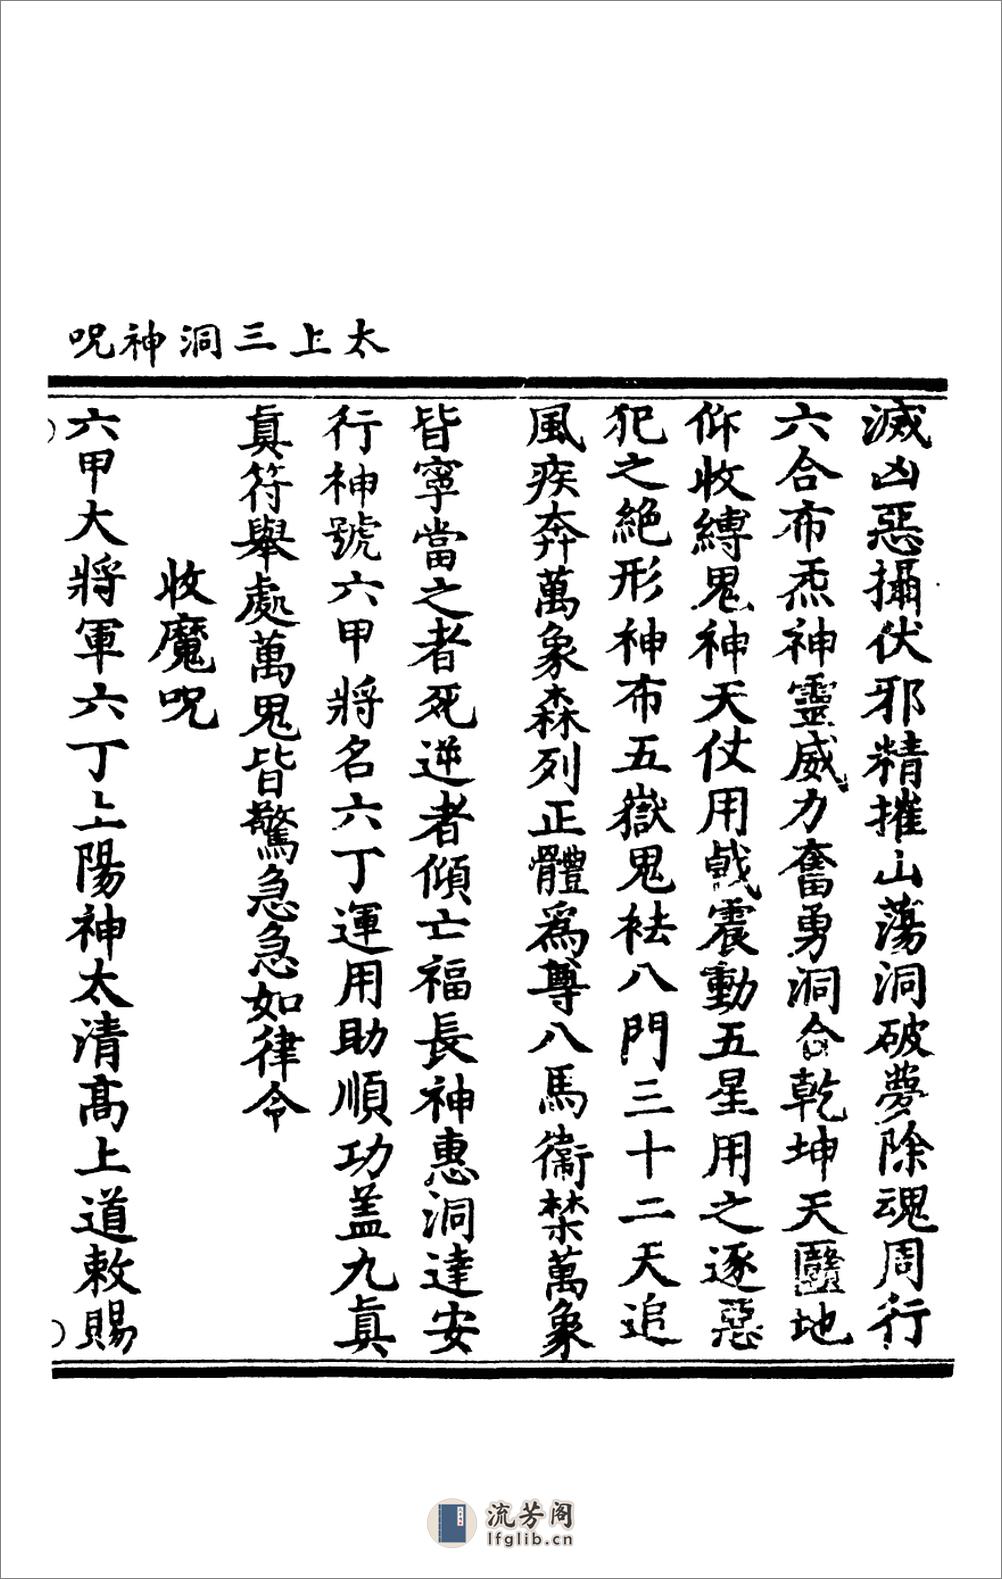 太上三洞神呪
滅凶惡攝伏邪精摧山蕩洞破夢除魂周行
六合布炁神靈威力奮勇洞合乾坤天醫地
仰收縛鬼神天仗用戟震動五星用之逐惡
犯之絶形神布五嶽鬼袪八門三十二天追
風疾奔萬象森列正體爲尊八馬衞禁萬象
皆寧當之者死逆者傾亡福長神惠洞達安
行神號六甲將名六丁運用助順功盖九眞
眞符舉處萬鬼皆驚急急如律令
收魔呪
六甲大將軍六丁上陽神太清髙上道敕賜
流芳阁
lfglib.cn